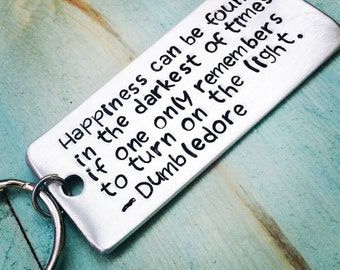 Happiness can be found
in the darkest of times
if one only remembers
to turn on the light.
~ Dumbledore